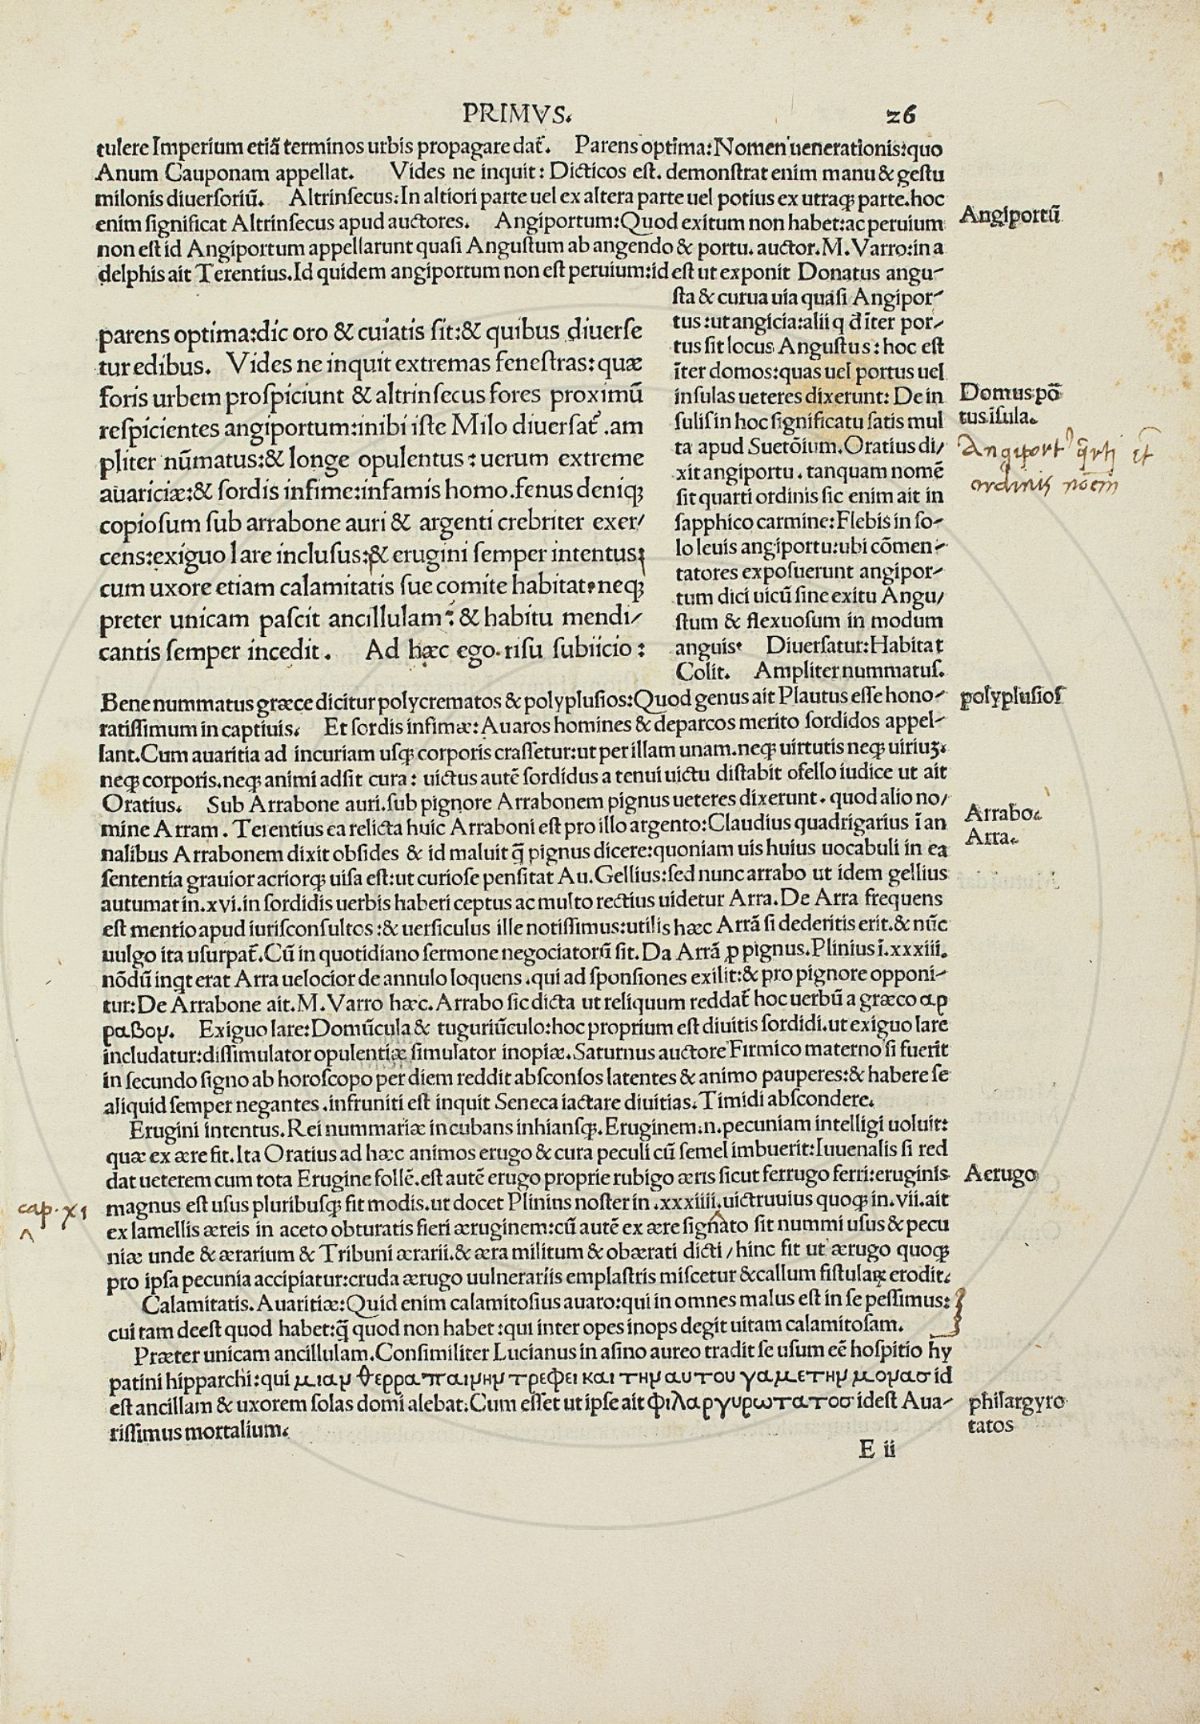 PRIMVS.
26
tulere Imperium etiã terminos urbis propagare dat̃. Parens optima:Nomen uenerationis:quo
Anum Cauponam appellat. Vides ne inquit: Dicticos est. demonstrat enim manu & gestu
milonis diuersoriũ. Altrinsecus:In altiori parte uel ex altera parte uel potius ex utraqꝫ parte.hoc
enim significat Altrinsecus apud auctores. Angiportum:Quod exitum non habet:ac peruium
Angiportũ
non est id Angiportum appellarunt quasi Angustum ab angendo & portu. auctor.M.Varro:in a
delphis ait Terentius.Id quidem angiportum non est peruium:id est ut exponit Donatus angu-
sta & curua uia quasi Angipor-
tus:ut angicia:alii q̃ d ĩter por-
tus sit locus Angustus:hoc est
ĩter domos:quas uel portus uel
insulas ueteres dixerunt: De in
sulis in hoc significatu satis mul
ta apud Suetõium.Oratius di/
xit angiportu. tanquam nomẽ
sit quarti ordinis sic enim ait in
sapphico carmine:Flebis in so-
lo leuis angiportu:ubi cõmen-
tatores exposuerunt angipor-
tum dici uicũ sine exitu Angu/
stum & flexuosum in modum
anguis. Diuersatur:Habitat
Colit. Ampliter nummatus.
Domus põ
tus ĩsula.
ordinis noẽm
parens optima:dic oro & cuiatis sit:& quibus diuerse
tur edibus. Vides ne inquit extremas fenestras:quæ
foris urbem prospiciunt & altrinsecus fores proximũ
respicientes angiportum:inibi iste Milo diuersat̃.am
pliter nũmatus:& longe opulentus:uerum extreme
auariciæ:& sordis infime:infamis homo.fenus deniqꝫ
copiosum sub arrabone auri & argenti crebriter exer/
cens:exiguo lare inclusus:& erugini semper intentus;
cum uxore etiam calamitatis sue comite habitat.neqꝫ
preter unicam pascit ancillulam: & habitu mendi/
cantis semper incedit. Ad hæc ego.risu subiicio:
Bene nummatus græce dicitur polycrematos & polyplusios:Quod genus ait Plautus esse hono-
polyplusios
ratissimum in captiuis. Et sordis infimæ:Auaros homines & deparcos merito sordidos appel-
lant.Cum auaritia ad incuriam usqꝫ corporis crassetur:ut per illam unam.neqꝫ uirtutis neqꝫ uiriuꝫ.
neqꝫ corporis.neqꝫ animi adsit cura: uictus autẽ sordidus a tenui uictu distabit ofello iudice ut ait
Oratius. Sub Arrabone auri.sub pignore Arrabonem pignus ueteres dixerunt. quod alio no/
Arrabo.
mine Arram. Terentius ea relicta huic Arraboni est pro illo argento:Claudius quadrigarius ĩ an
Arra.
nalibus Arrabonem dixit obsides & id maluit q̃ pignus dicere:quoniam uis huius uocabuli in ea
sententia grauior acriorqꝫ uisa est:ut curiose pensitat Au.Gellius:sed nunc arrabo ut idem gellius
autumat in.xvi.in sordidis uerbis haberi ceptus ac multo rectius uidetur Arra.De Arra frequens
est mentio apud iurisconsultos:& uersiculus ille notissimus:utilis hæc Arrã si dederitis erit.& nũc
uulgo ita usurpat̃.Cũ in quotidiano sermone negociatorũ sit.Da Arrã ꝓ pignus.Plinius ĩ.xxxiii.
nõdũ inqt erat Arra uelocior de annulo loquens.qui ad sponsiones exilit:& pro pignore opponi-
tur:De Arrabone ait.M.Varro hæc.Arrabo sic dicta ut reliquum reddat̃ hoc uerbũ a græco αρ
ραβον. Exiguo lare:Domũcula & tuguriũculo:hoc proprium est diuitis sordidi.ut exiguo lare
includatur:dissimulator opulentiæ simulator inopiæ.Saturnus auctore Firmico materno si fuerit
in secundo signo ab horoscopo per diem reddit absconsos latentes & animo pauperes:& habere se
aliquid semper negantes.infruniti est inquit Seneca iactare diuitias.Timidi abscondere.
Erugini intentus.Rei nummariæ incubans inhiansqꝫ.Eruginem.n.pecuniam intelligi uoluit:
quæ ex ære fit.Ita Oratius ad hæc animos erugo & cura peculi cũ semel imbuerit:Iuuenalis si red
dat ueterem cum tota Erugine follẽ.est autẽ erugo proprie rubigo æris sicut ferrugo ferri:eruginis
Aerugo
magnus est usus pluribusqꝫ fit modis.ut docet Plinius noster in.xxxiiii.uictruuius quoqꝫ in.vii.ait
cap. xi
ex lamellis æreis in aceto obturatis fieri æruginem:cũ autẽ ex ære signato sit nummi usus & pecu
niæ unde & ærarium & Tribuni ærarii.& æra militum & obærati dicti/hinc fit ut ærugo quoqꝫ
pro ipsa pecunia accipiatur:cruda ærugo uulnerariis emplastris miscetur & callum fistulaꝝ erodit.
Calamitatis.Auaritiæ:Quid enim calamitosius auaro:qui in omnes malus est in se pessimus:
cui tam deest quod habet:q̃ quod non habet:qui inter opes inops degit uitam calamitosam.
Præter unicam ancillulam.Consimiliter Lucianus in asino aureo tradit se usum eẽ hospitio hy
patini hipparchi:qui μιαν θερραπαινην τρεφει και την αυτου γαμετην μονασ id
est ancillam & uxorem solas domi alebat.Cum esset ut ipse ait φιλαργυρωτατοσ idest Aua-
philargyro
tatos
rissimus mortalium.
E ii